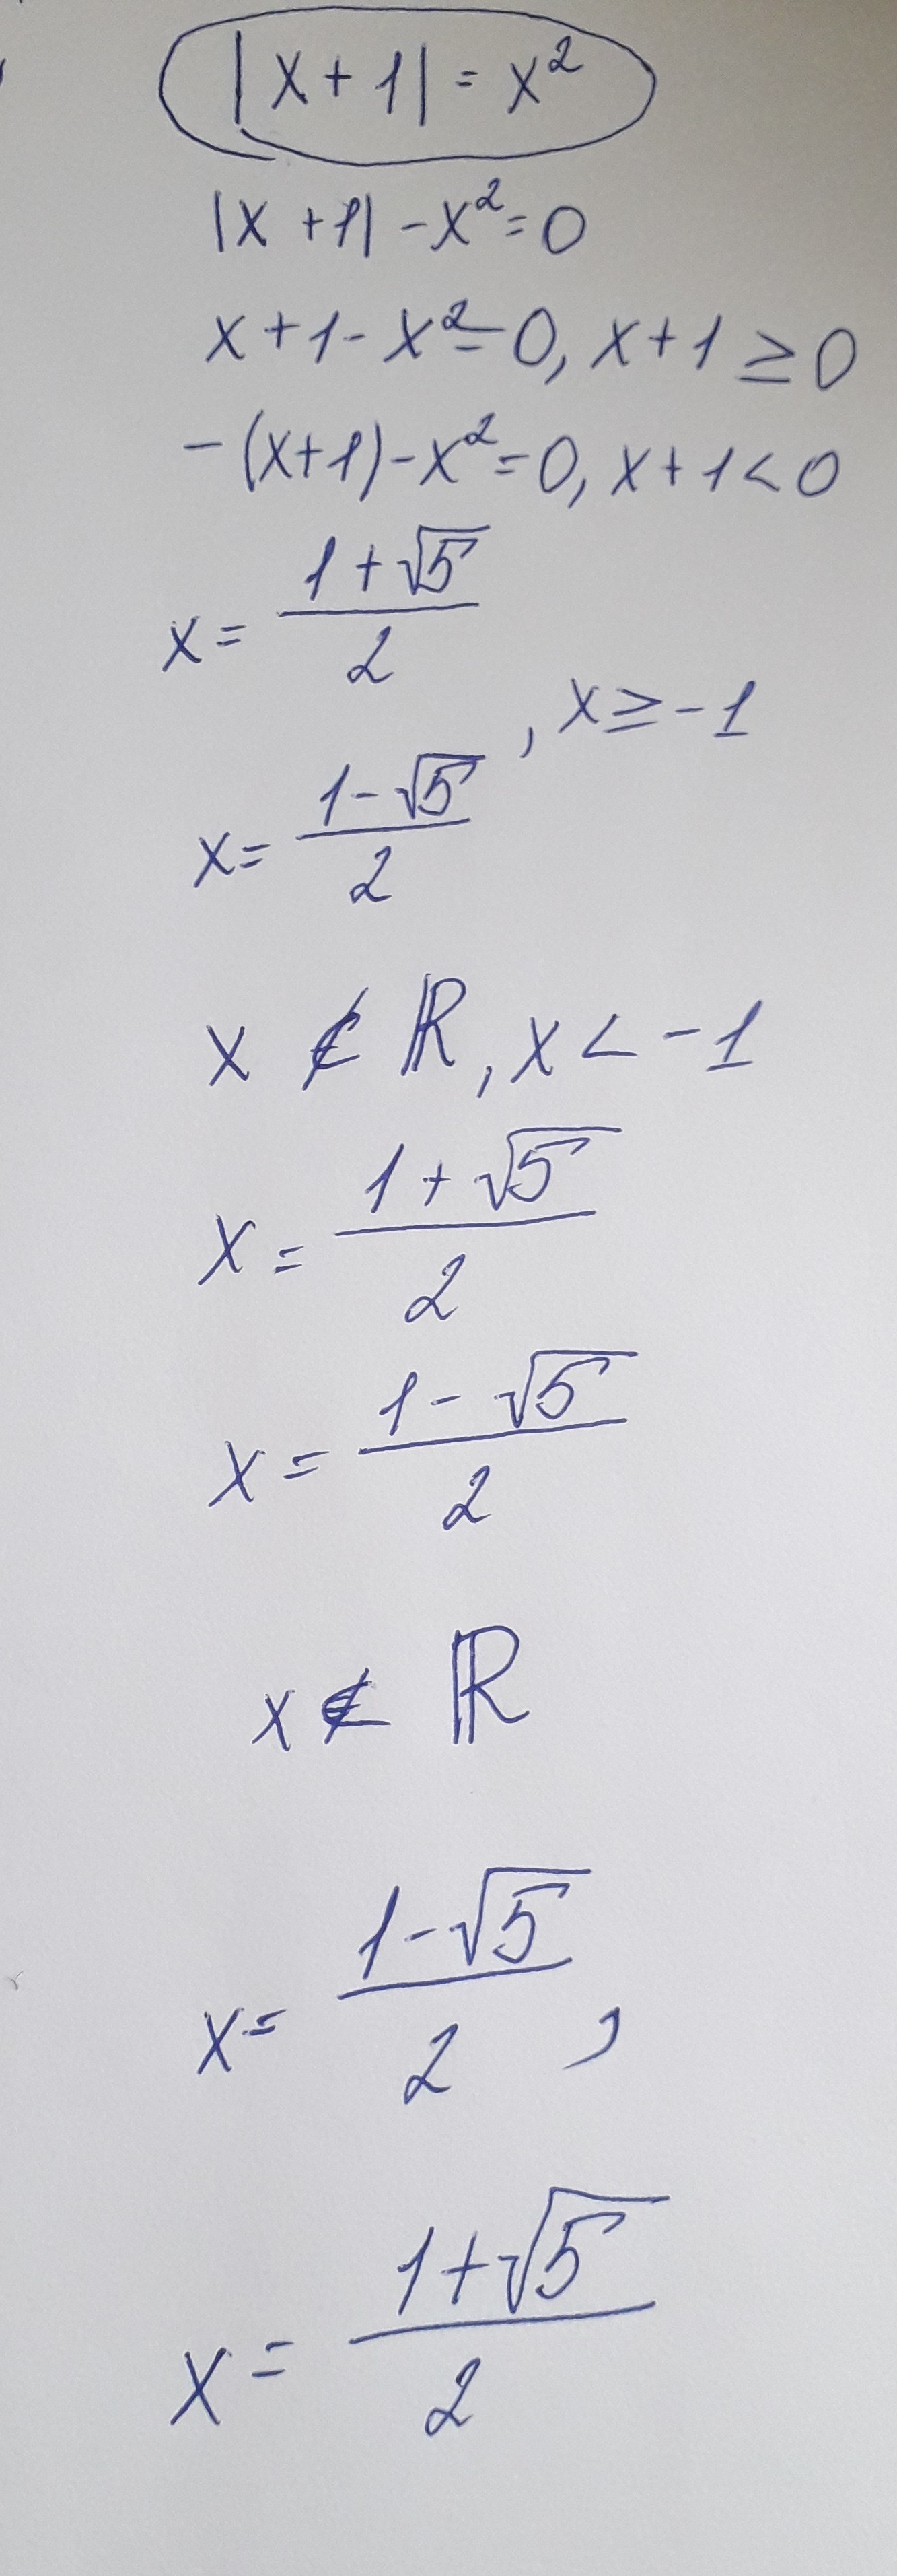 |x+1| = x²
|x+1| - x² = 0
x+1-x²=0, x+1 ≥ 0
-(x+1)-x²=0, x+1<0
x = (1+√5)/2
, x ≥ -1
x = (1-√5)/2
x ∉ ℝ, x < -1
x = (1+√5)/2
x = (1-√5)/2
x ∉ ℝ
x = (1-√5)/2 ,
x = (1+√5)/2